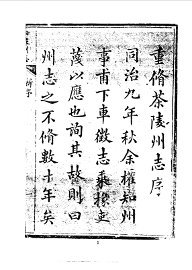 重脩茶陵州志序
同治九年秋余權知州
事甫下車徵志乘於吏
蔑以應也詢其故則曰
州志之不脩數十年矣